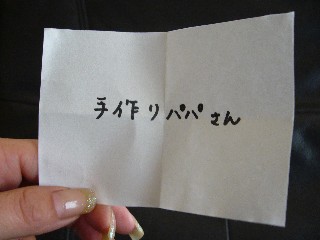 手作りパパさん